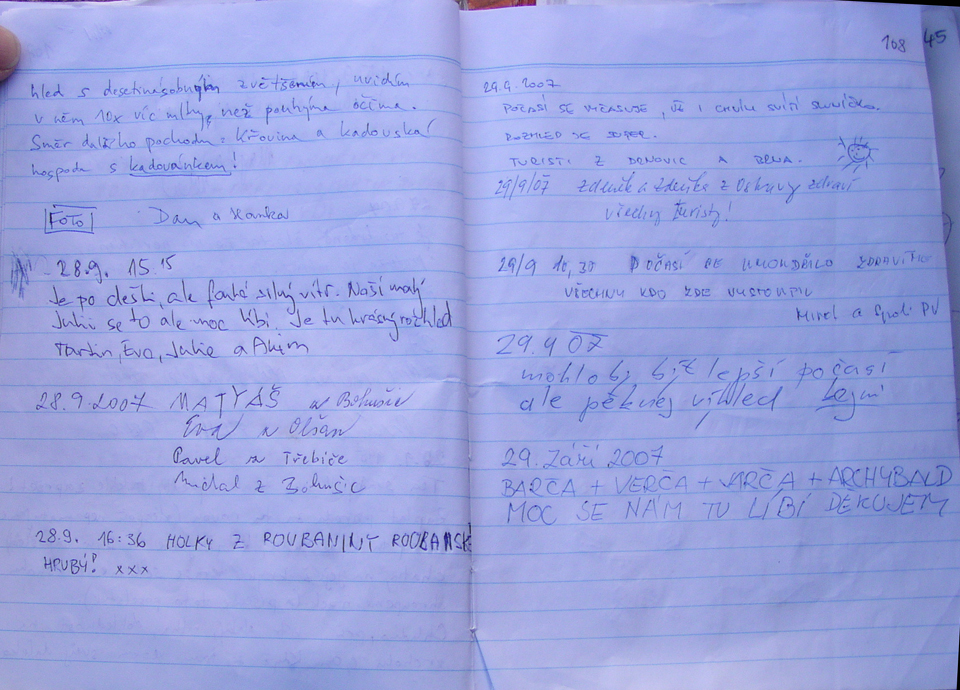 hled s desetinásobným zvětšením, uvidím
v něm 10x víc mlhy, než pouhýma očima.
Směr dalšího pochodu: Křovina a kadovská
hospoda s kadovánkem!
FOTO Dan a Hanka
28.9. 15.15
Je po dešti, ale fouká silný vítr. Naší malý
Julii se to ale moc líbí. Je tu krásný rozhled
Martin, Eva, Julie a
28.9.2007 MATYÁŠ z Bohušic
Eva z Olšan
Pavel z Třebíče
Michal z Bohušic
28.9. 16:36 HOLKY Z
HRUBÝ! xxx
108 45
29.9.2007
POČASÍ SE UČASUJE, UŽ I CHVÍLI SVÍTÍ SLUNÍČKO.
ROZHLED JE SUPER.
TURISTI Z DRNOVIC A BRNA.
29/9/07 Zdeněk a Zdeňka z Ostravy zdraví
všechny turisty!
29/9 10,30 POČASÍ SE UMOUDŘILO ZDRAVÍME
VŠECHNY KDO ZDE VYSTOUPILI
Mirek a spol. PV
29.9 07
mohlo by být lepší počasí
ale pěknej výhled
29. Září 2007
BARČA + VERČA + JARČA + ARCHYBALD
MOC SE NÁM TU LÍBÍ DĚKUJEM